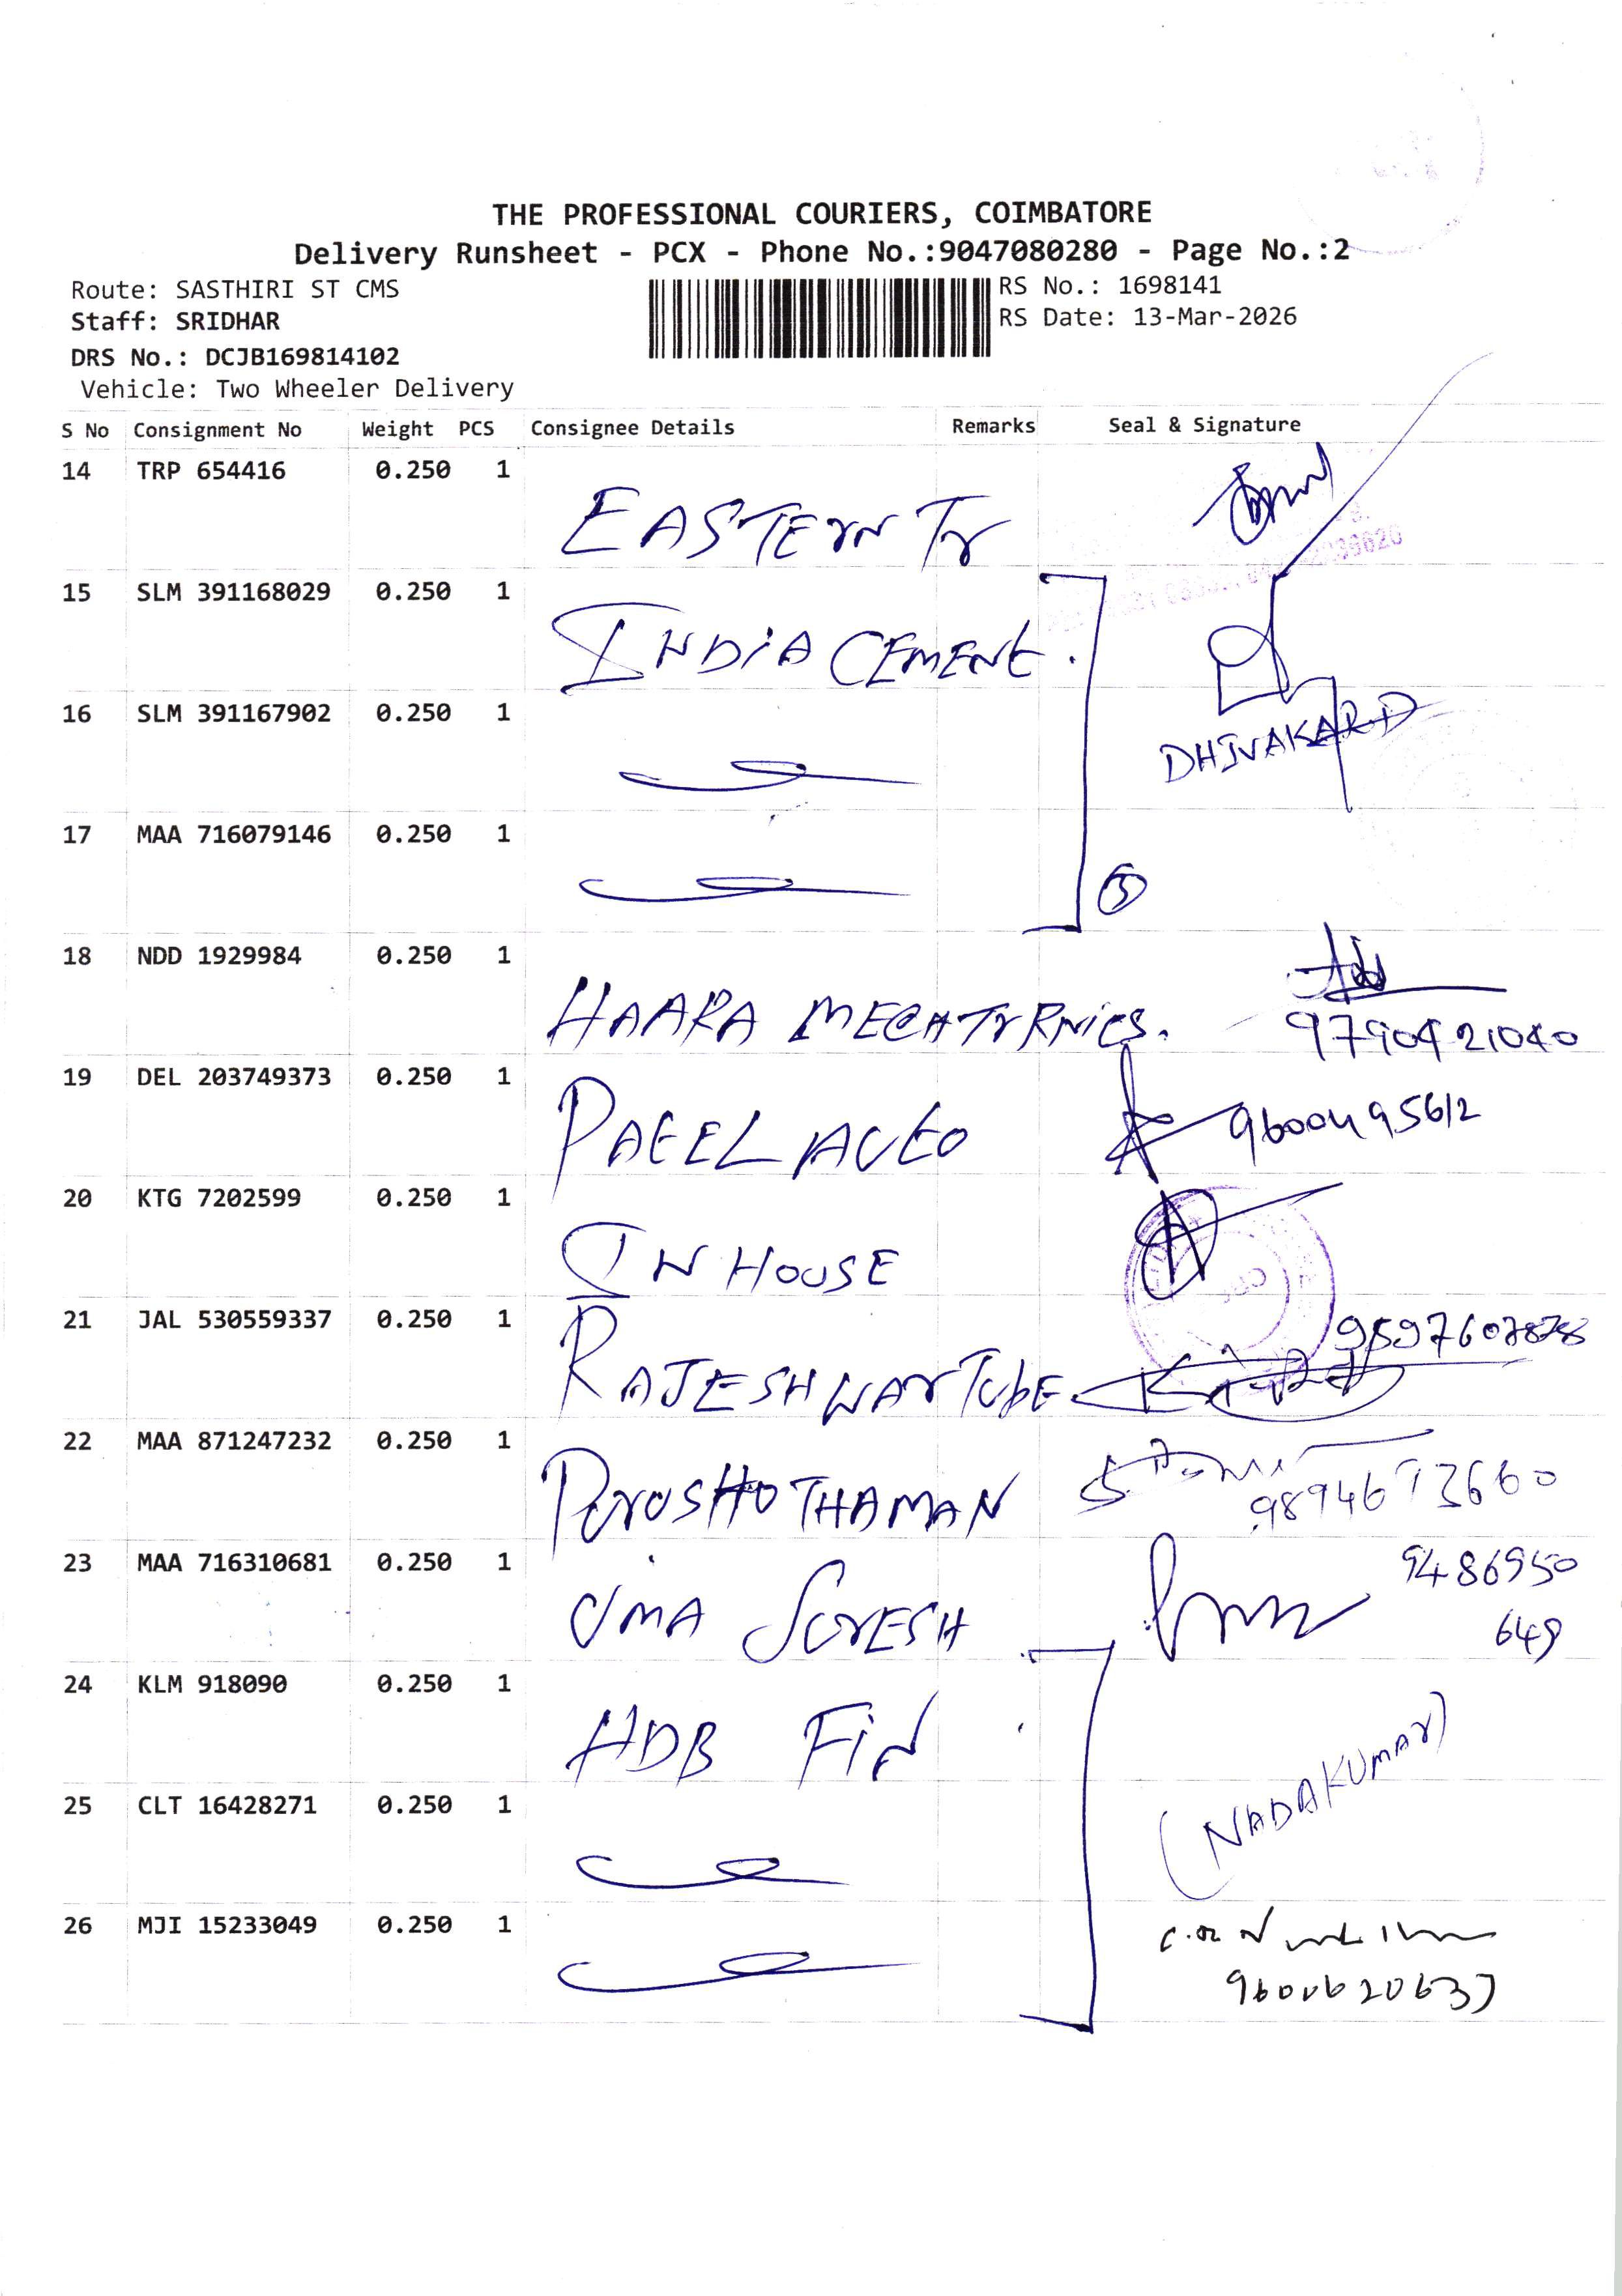 THE PROFESSIONAL COURIERS, COIMBATORE
Delivery Runsheet - PCX - Phone No.:9047080280 - Page No.:2
Route: SASTHIRI ST CMS
RS No.: 1698141
Staff: SRIDHAR
RS Date: 13-Mar-2026
DRS No.: DCJB169814102
Vehicle: Two Wheeler Delivery
S No Consignment No Weight PCS Consignee Details Remarks Seal & Signature
14 TRP 654416 0.250 1
EASTERN Tr
15 SLM 391168029 0.250 1
INDIA CEMENt.
16 SLM 391167902 0.250 1
DHIVAKAR D
17 MAA 716079146 0.250 1
18 NDD 1929984 0.250 1
HAARA MECHATrRNiCS.
9790421040
19 DEL 203749373 0.250 1
PAtEL AUto 9600495612
20 KTG 7202599 0.250 1
IN HOUSE
21 JAL 530559337 0.250 1
RAJESHWAr TubE
22 MAA 871247232 0.250 1
PUrUSHOTHAMAN
9894673660
23 MAA 716310681 0.250 1
UMA SUrESH
9486950
649
24 KLM 918090 0.250 1
HDB FiN
25 CLT 16428271 0.250 1
(NADAKUMAr)
26 MJI 15233049 0.250 1
9600620637